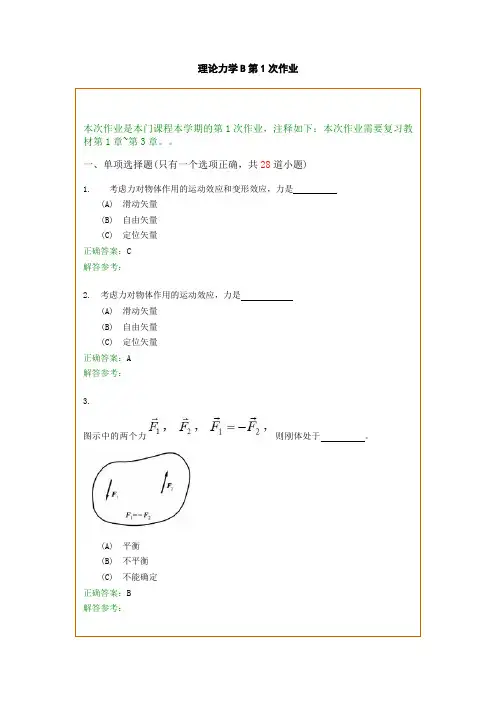 理论力学B第1次作业
本次作业是本门课程本学期的第1次作业，注释如下：本次作业需要复习教
材第1章~第3章。。
一、单项选择题(只有一个选项正确，共28道小题)
1. 考虑力对物体作用的运动效应和变形效应，力是
(A) 滑动矢量
(B) 自由矢量
(C) 定位矢量
正确答案：C
解答参考：
2. 考虑力对物体作用的运动效应，力是
(A) 滑动矢量
(B) 自由矢量
(C) 定位矢量
正确答案：A
解答参考：
3.
图示中的两个力 F₁， F₂， F₁=−F₂， 则刚体处于 。
F₁ F₂
F₁=−F₂
(A) 平衡
(B) 不平衡
(C) 不能确定
正确答案：B
解答参考：